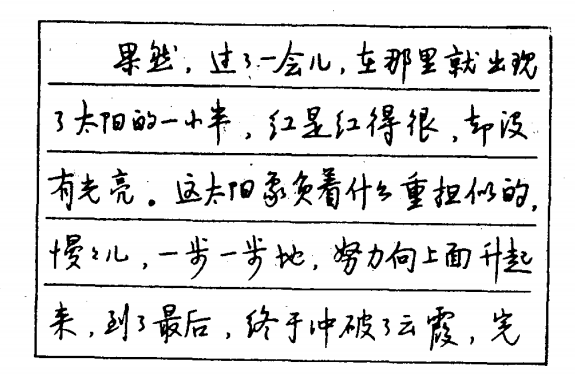 果然，过了一会儿，在那里就出现
了太阳的一小半，红是红得很，却没
有光亮。这太阳象负着什么重担似的，
慢々儿，一步一步地，努力向上面升起
来，到了最后，终于冲破了云霞，完